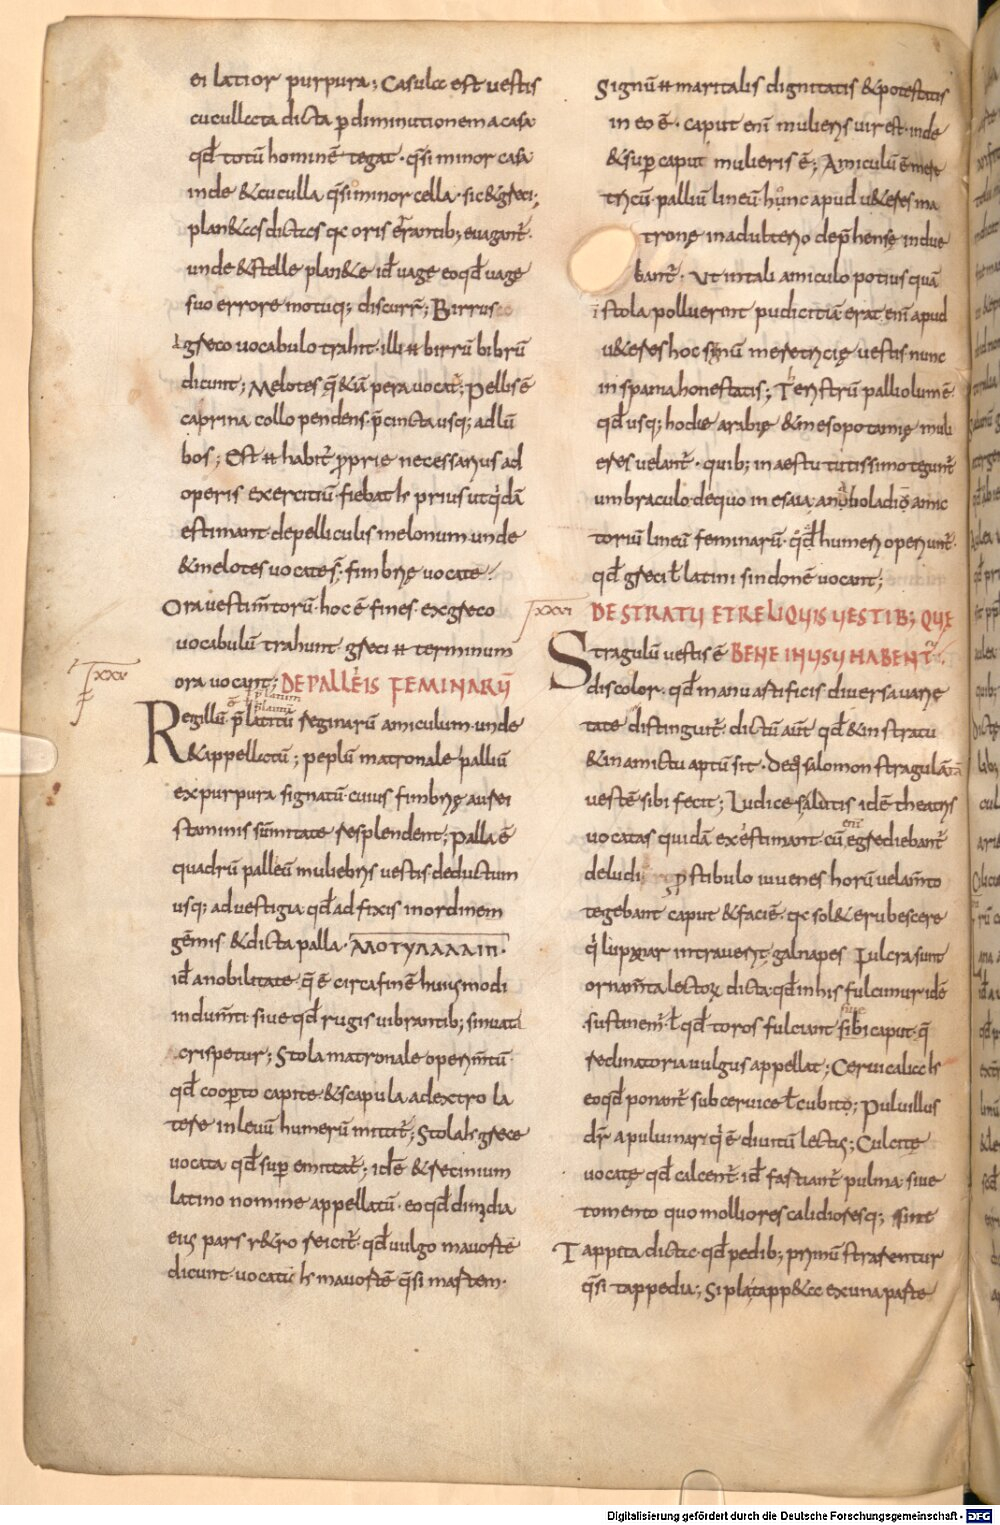 ei latior purpura; Casula est uestis
cucullata dicta p̄ diminutionem a casa
qd̄ totū hominē tegat · q̄si minor casa
inde & cuculla q̄si minor cella · sic & greci;
plan&as dictas qa oris errantib; euagant̄ ·
unde & stelle plan&e id̄ uage eo qd̄ uage
suo errore motuq; discurr̄; Birrus
a greco uocabulo trahit · illi birrū bibrū
dicunt; Melotes q̄ &iā pera uocat̄; Pellis ē
caprina collo pendens p̄cincta usq; ad lū
bos; Est habit̄ p̄prie necessarius ad
operis exercitiū · fiebat prius ut qdā
estimant · de pelliculis melonum unde
& melotes uocate s̄ · fimbrię uocate
Ora uestim̄torū · hoc ē fines · ex greco
uocabulū trahunt · greci terminum
ora uocant; DE PALLEIS FEMINARŪ
XXXV
Regillū ē p̄latitū reginarū amiculum · unde
& appellatū; peplū matronale palliū
ex purpura signatū · cuius fimbrię aurei
staminis sūmitate resplendent; palla ē
quadrū palleū muliebris uestis deductum
usq; ad uestigia qd̄ adfixis in ordinem
gēmis & dicta palla ·
id̄ a nobilitate q̄ ē circa finē huiusmodi
indum̄ti siue qd̄ rugis uibrantib; sinuata
crispetur; Stola matronale operim̄tū ·
qd̄ cooperto capite & scapula a dextro la
tere in leuū humerū mittit̄; Stola grece
uocata qd̄ sup̄ emittat̄; idē & recinium
latino nomine appellatū · eo qd̄ dimidia
eius pars r&ro reicit̄ · qd̄ uulgo mauorte
dicunt · uocatū mauortē q̄si martem ·
Signū maritalis dignitatis & potestatis
in eo ē · caput enī mulieris uir est · inde
& sup̄ caput mulieris ē; Amiculū ē mere
tricū palliū lineū · hoc apud u&eres ma
tronę in adulterio dep̄hense indue
bant̄ · ut in tali amiculo potius quā
istola polluerint pudicitiā · erat enī apud
u&eres hoc signū meretricię uestis nunc
in spania honestatis; Teristrū palliolum ē
qd̄ usq; hodie arabię & mesopotamię muli
eres uelant̄ · quib; in aestu tutissimo tegunt̄
umbraculo · de quo in esaia · anaboladiō amic
toriū lineū feminarū · qd̄ humeri operiunt̄ ·
qd̄ greci latini sindonē uocant;
XXXVI DE STRATU ET RELIQUIS UESTIB; QUĘ
Stragulū uestis ē BENE IN USU HABENT̄
discolor · qd̄ manu artificis diuersa uarie
tate distinguit̄ · dictū aut̄ qd̄ & in stratu
& in amictu aptū sit · De q̄ salomon stragulatā
uestē sibi fecit; Ludices salutis idē theatris
uocatas quidā existimant · cū enī egrediebant̄
de ludi p̄stibulo iuuenes horū uelam̄to
tegebant caput & faciē · qa sol& erubescere
qi lupanar intrauerit · galnapes Fulcra sunt
ornam̄ta lectorū dicta qd̄ in his fulcimur idē
sustinem̄ qd̄ toros fulciant siue sibi caput · q̄
reclinatoria uulgus appellat; Ceruicalia
eo qd̄ ponant̄ sub ceruice cubito; Puluillus
dr̄ a puluinar qi ē diuitū lectus; Culcite
uocatę qd̄ calcent̄ · id̄ farciant̄ pulma siue
tomento quo molliores calidioresq; sint
Tappita dicta qd̄ pedib; primū strarentur
q̄si tappedia; Sipla tapp&a ex una parte
Digitalisierung gefördert durch die Deutsche Forschungsgemeinschaft - DFG